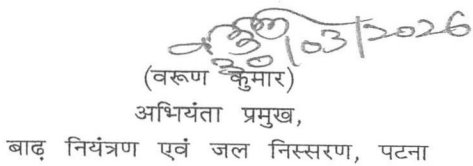 30/03/2026
(वरूण कुमार)
अभियंता प्रमुख,
बाढ़ नियंत्रण एवं जल निस्सरण, पटना